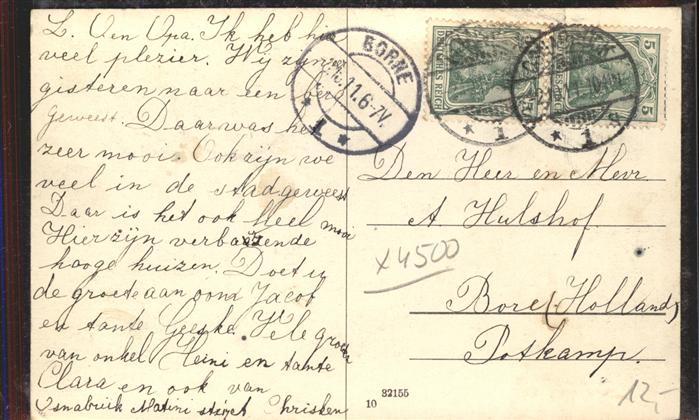 L. O en Opa. Ik heb hier
veel plezier. Wij zijn
gisteren naar een berg
geweest. Daar was het
zeer mooi. Ook zijn we
veel in de stad geweest
Daar is het ook heel mooi
Hier zijn verbazende
hooge huizen. Doet u
de groete aan oom Jacob
en tante Geeske. Vele groeten
van onkel Heini en tante
Clara en ook van
BORNE
11.6-7V.
* 1 *
DEUTSCHES REICH
5
5
* 1 *
Den Heer en Mevr.
A. Hulshof
x4500
Bore (Holland)
Potkamp.
12,-
32155
10